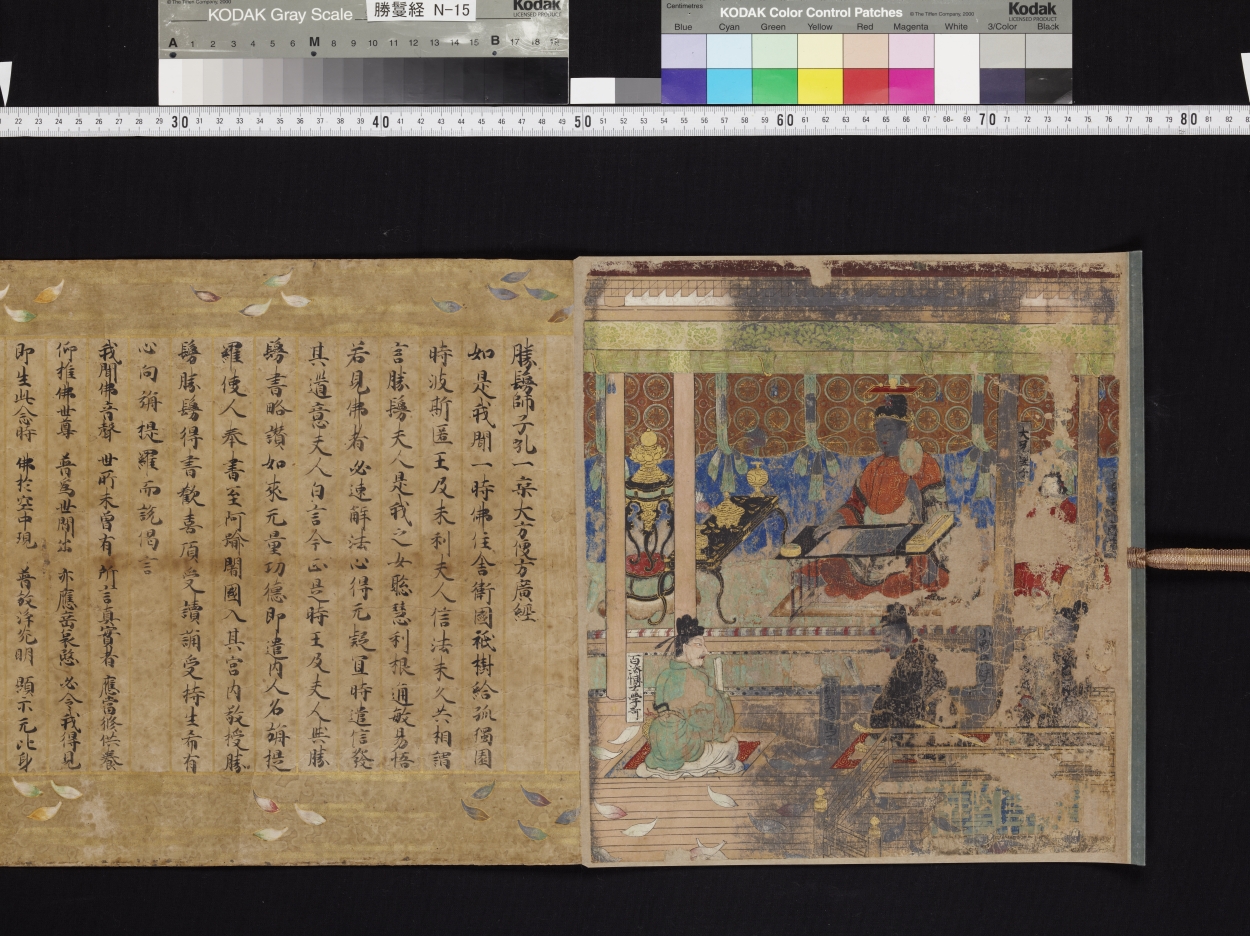 © The Tiffen Company, 2000
KODAK Gray Scale
Kodak
LICENSED PRODUCT
勝鬘経 N-15
A 1 2 3 4 5 6 M 8 9 10 11 12 13 14 15 B 17 18 19
Centimetres
KODAK Color Control Patches
© The Tiffen Company, 2000
Kodak
LICENSED PRODUCT
Blue Cyan Green Yellow Red Magenta White 3/Color Black
22 23 24 25 26 27 28 29 30 31 32 33 34 35 36 37 38 39 40 41 42 43 44 45 46 47 48 49 50 51 52 53 54 55 56 57 58 59 60 61 62 63 64 65 66 67 68 69 70 71 72 73 74 75 76 77 78 79 80 81 82
百濟博士学哥
勝鬘師子吼一乗大方便方廣經
如是我聞一時佛住舍衛國祇樹給孤獨園
時波斯匿王及末利夫人信法未久共相謂
言勝鬘夫人是我之女聡慧利根通敏易悟
若見佛者必速解法心得无疑冝時遣信發
其道意夫人白言今正是時王及夫人与勝
鬘書略讃如來无量功德即遣内人名旃提
羅使人奉書至阿踰闍國入其宮内敬授勝
鬘勝鬘得書歡喜頂受讀誦受持生希有
心向旃提羅而說偈言
我聞佛音聲 世所未曾有 所言真實者 應當修供養
仰推佛世尊 普為世間出 亦應垂哀愍 必令我得見
即生此念時 佛於空中現 普放淨光明 顯示无比身